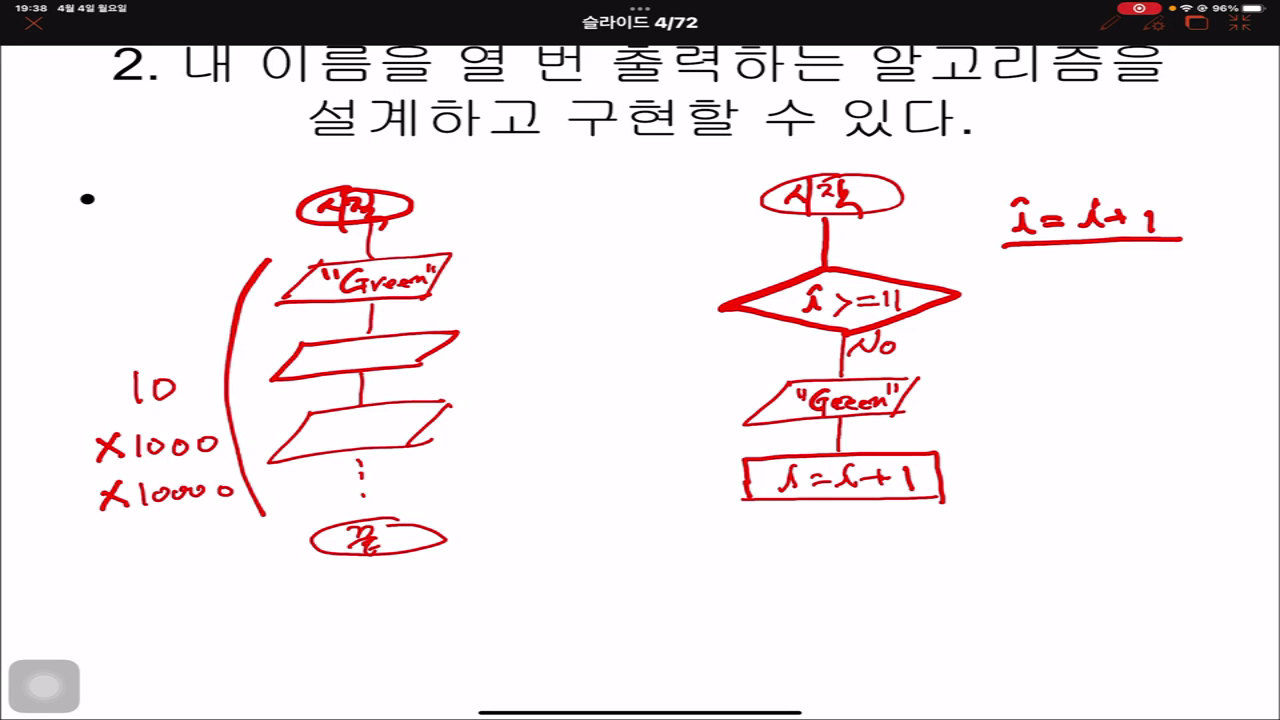 19:38 4월 4일 월요일
96%
슬라이드 4/72
2. 내 이름을 열 번 출력하는 알고리즘을
설계하고 구현할 수 있다.
시작
"Green"
10
×1000
×10000
끝
시작
i >= 11
No
"Geeen"
i = i + 1
i = i + 1